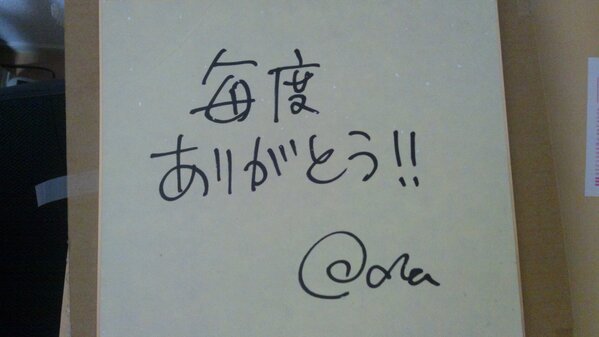 毎度
ありがとう!!